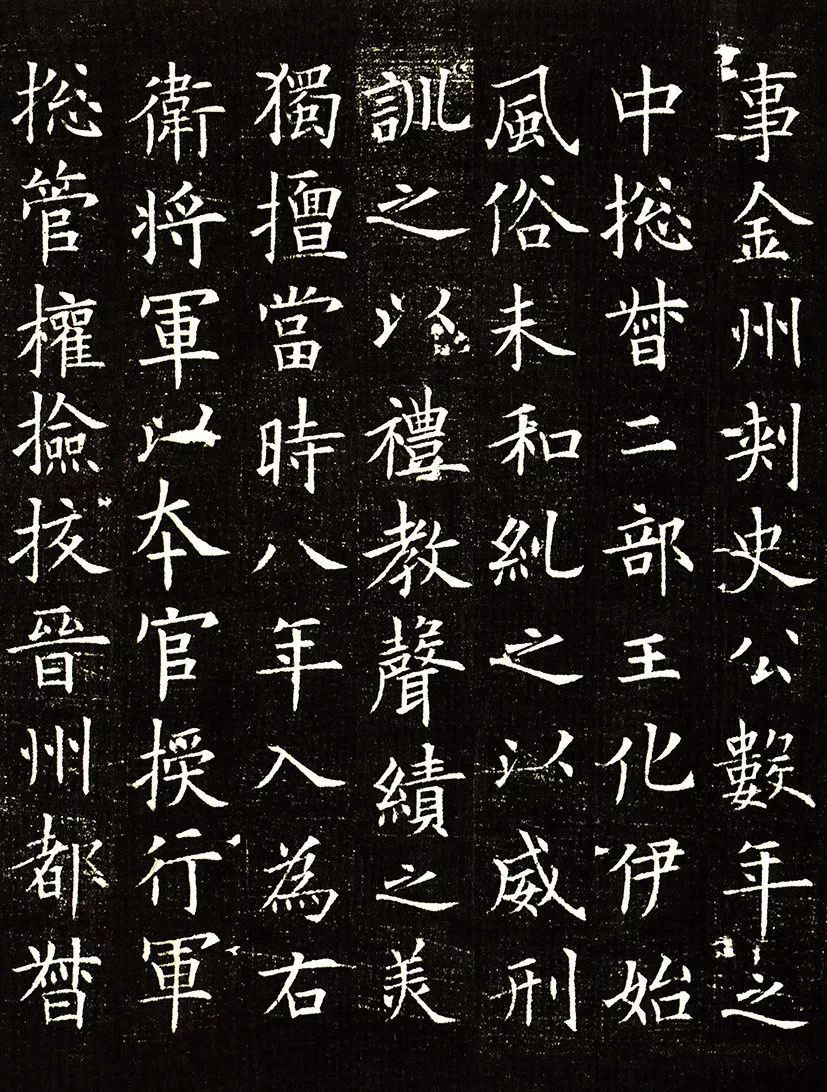 事金州刾史公數年之
中捴督二部王化伊始
風俗未和糺之以威刑
訓之以禮教聲績之美
獨擅當時八年入為右
衛将軍以夲官授行軍
捴管權撿挍晉州都督